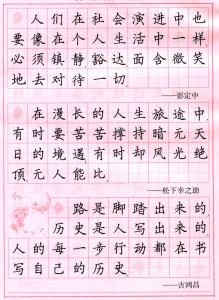 人们在社会演进中也
要像在个人生活中一样
必须镇静豁达面含微笑
地去对待一切
在漫长的人生旅途中
有时要苦苦撑持暗无天
日的境遇有时却风光绝
顶无人能比
——松下幸之助
路是脚踏出来的
历史是人写出来的
人的每一步行动都在书
写自己的历史
——吉鸿昌